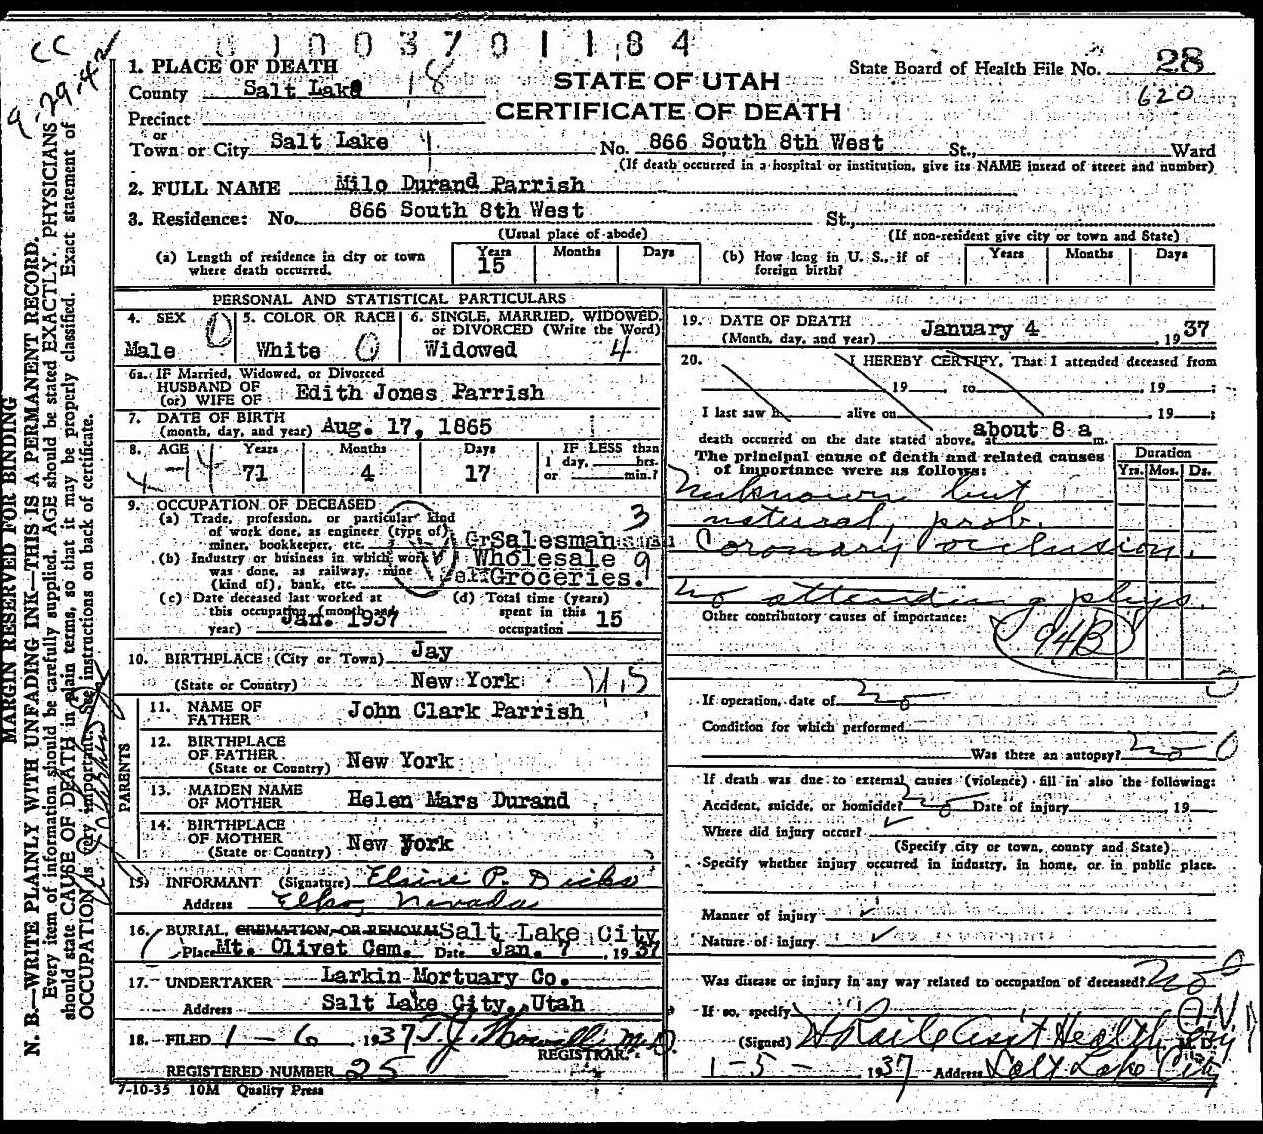 01003701184
CC
9-29-42
1. PLACE OF DEATH
County Salt Lake 18
STATE OF UTAH
CERTIFICATE OF DEATH
State Board of Health File No. 28
620
Precinct
or
Town or City Salt Lake 1 No. 866 South 8th West St., Ward
(If death occurred in a hospital or institution, give its NAME insead of street and number)
2. FULL NAME Milo Durand Parrish
3. Residence: No. 866 South 8th West St,
(Usual place of abode) (If non-resident give city or town and State)
(a) Length of residence in city or town where death occurred. Years 15 Months Days
(b) How long in U. S., if of foreign birth? Years Months Days
PERSONAL AND STATISTICAL PARTICULARS
4. SEX Male 0
5. COLOR OR RACE White 0
6. SINGLE, MARRIED, WIDOWED, or DIVORCED (Write the Word) Widowed 4
6a. IF Married, Widowed, or Divorced
HUSBAND OF
(or) WIFE OF Edith Jones Parrish
7. DATE OF BIRTH
(month, day, and year) Aug. 17, 1865
8. AGE Years 71 Months 4 Days 17
IF LESS than
1 day, hrs.
or min.?
9. OCCUPATION OF DECEASED
(a) Trade, profession, or particular kind
of work done, as engineer (type of)
miner, bookkeeper, etc. Salesman 3
(b) Industry or business in which work
was done, as railway, mine
(kind of), bank, etc. Wholesale Groceries. 9
(c) Date deceased last worked at
this occupation (month and
year) Jan. 1937
(d) Total time (years)
spent in this
occupation 15
10. BIRTHPLACE (City or Town) Jay
(State or Country) New York
PARENTS
11. NAME OF
FATHER John Clark Parrish
12. BIRTHPLACE
OF FATHER
(State or Country) New York
13. MAIDEN NAME
OF MOTHER Helen Mars Durand
14. BIRTHPLACE
OF MOTHER
(State or Country) New York
15. INFORMANT (Signature) Elsine P. Dicks
Address Elko, Nevada
16. BURIAL, CREMATION, OR REMOVAL Salt Lake City
Place Mt. Olivet Cem. Date Jan. 7, 1937
17. UNDERTAKER Larkin Mortuary Co.
Address Salt Lake City, Utah
18. FILED 1-6, 1937 T. J. Howells M.D.
REGISTRAR.
REGISTERED NUMBER 25
7-10-35 10M Quality Press
19. DATE OF DEATH
(Month, day, and year) January 4, 1937
20. I HEREBY CERTIFY, That I attended deceased from
19 to , 19 ;
I last saw h alive on , 19 ;
death occurred on the date stated above, at about 8 a m.
The principal cause of death and related causes
of importance were as follows:
Duration
Yrs. Mos. Ds.
Unknown but
natural, prob.
Coronary occlusion.
no attending phys.
Other contributory causes of importance:
94B
If operation, date of no
Condition for which performed
Was there an autopsy? no 0
If death was due to external causes (violence) fill in also the following:
Accident, suicide, or homicide? no Date of injury , 19
Where did injury occur?
(Specify city or town, county and State)
Specify whether injury occurred in industry, in home, or in public place.
Manner of injury
Nature of injury
Was disease or injury in any way related to occupation of deceased? no
If so, specify
(Signed)
1-5- 1937 Address Salt Lake City
MARGIN RESERVED FOR BINDING
N. B.—WRITE PLAINLY WITH UNFADING INK—THIS IS A PERMANENT RECORD.
Every item of information should be carefully supplied. AGE should be stated EXACTLY. PHYSICIANS
should state CAUSE OF DEATH in plain terms, so that it may be properly classified. Exact statement of
OCCUPATION is very important. See instructions on back of certificate.